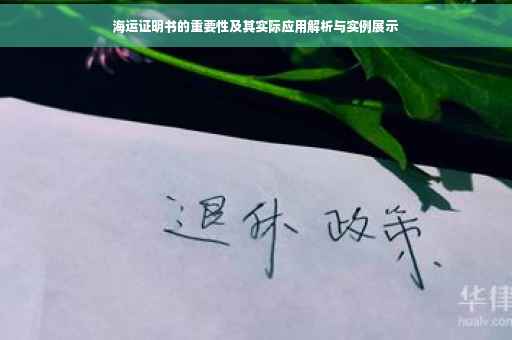 海运证明书的重要性及其实际应用解析与实例展示
退休 政策
华律
hualv.com